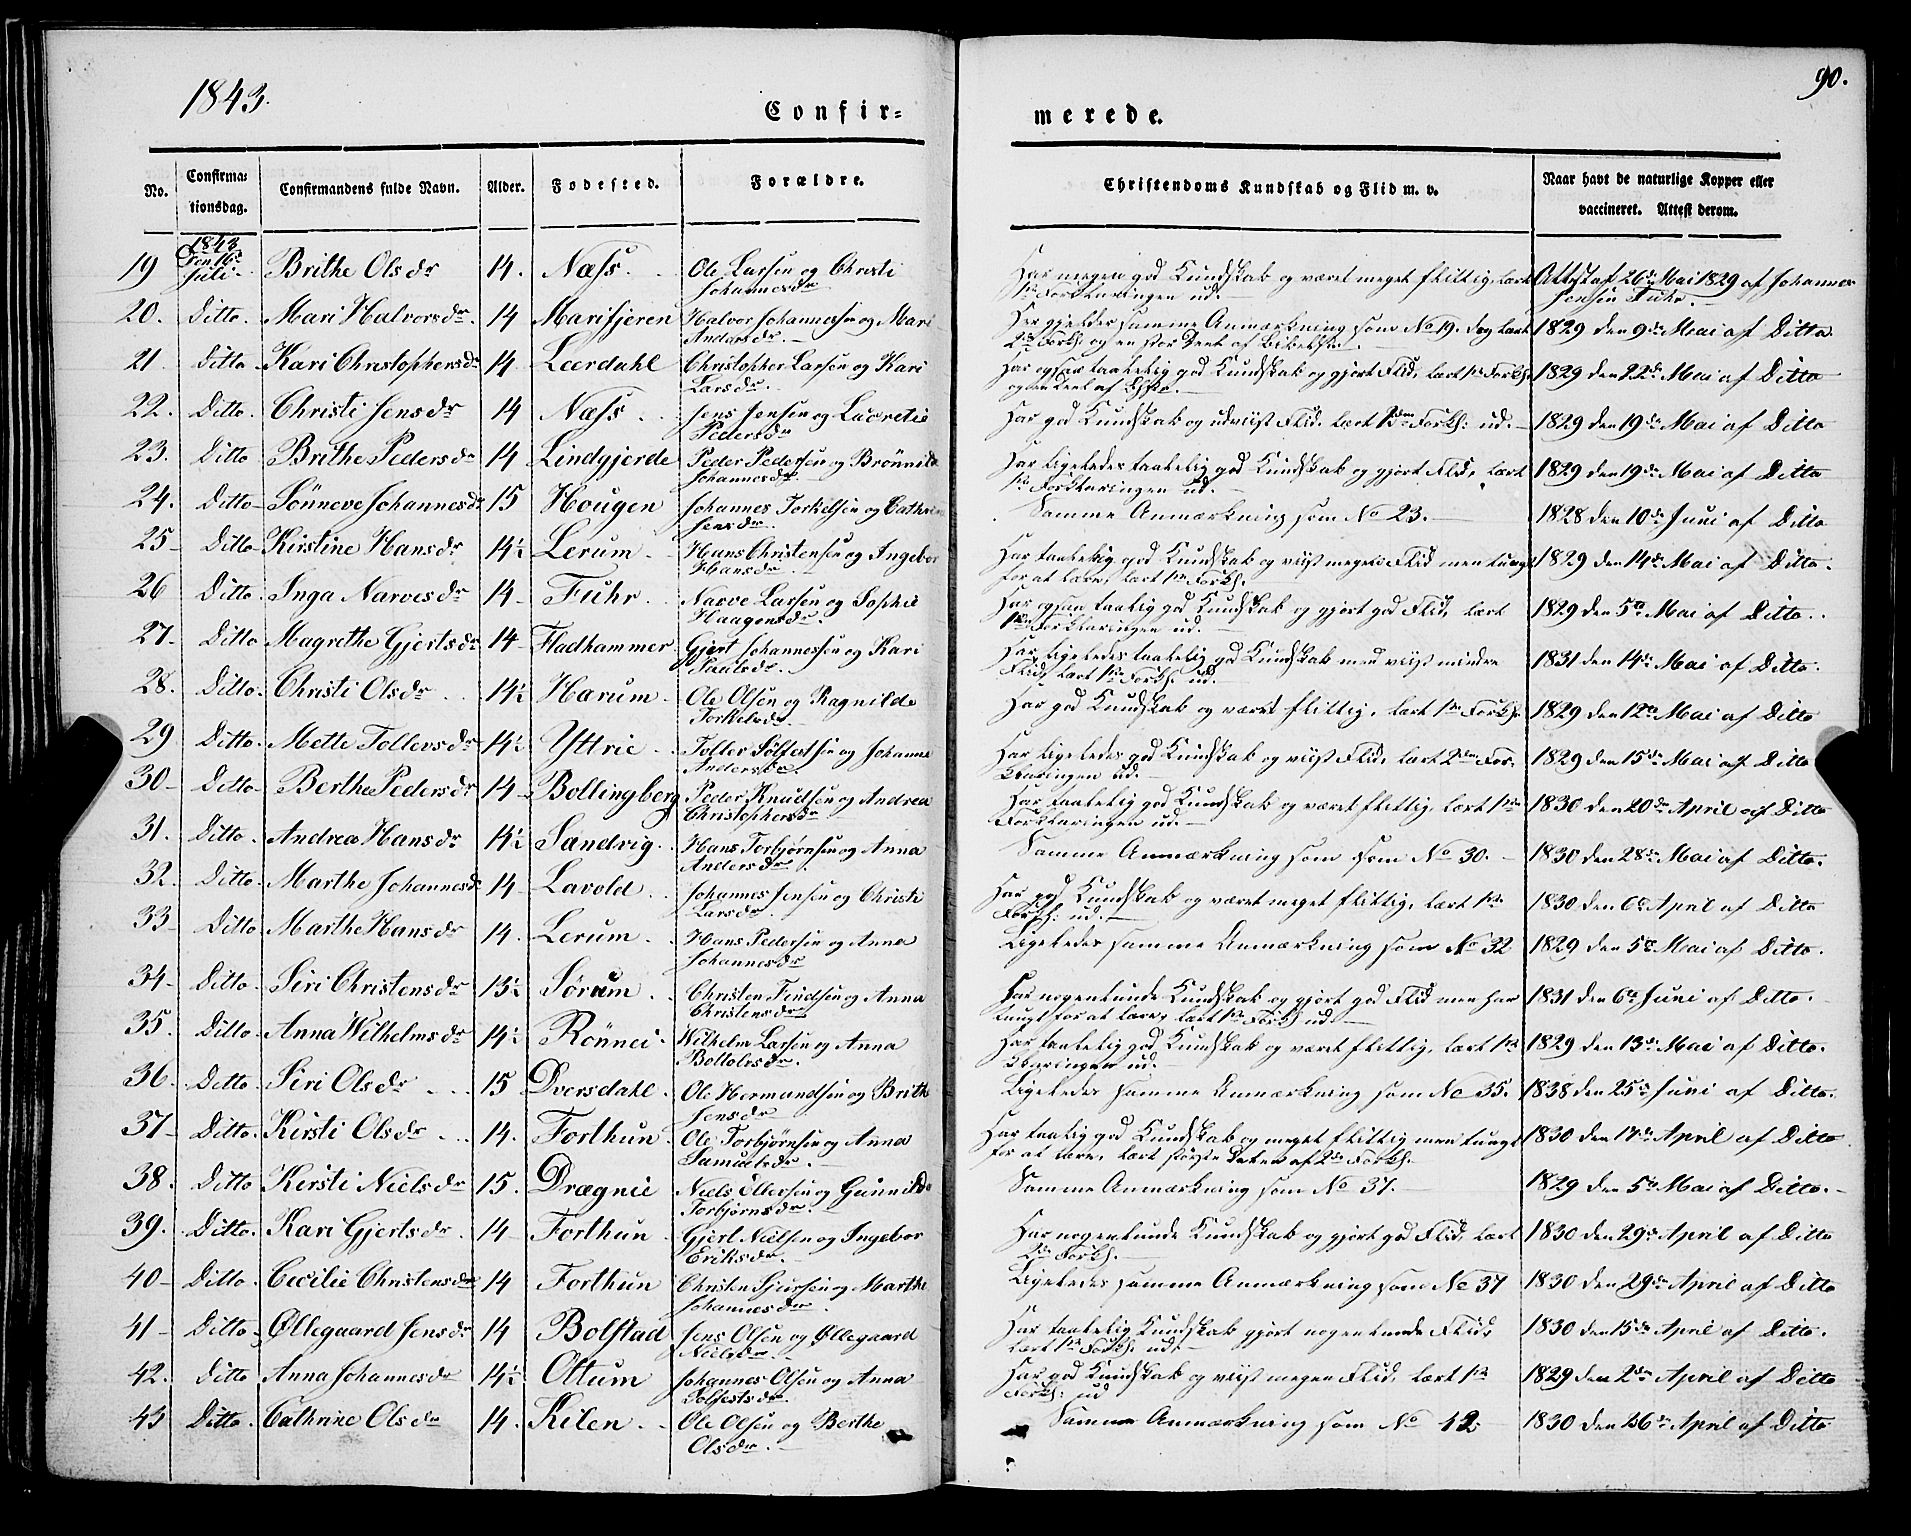 1843.
Confir=
merede.
90.
No.
Confirma=
tionsdag.
Confirmandens fulde Navn.
Alder.
Fodested.
Forældre.
Christendoms Kundskab og Flid m. v.
Naar havt de naturlige Kopper eller
vaccineret. Attest derom.
1843
Den 16de
19 Juli Brithe Olsdr 14. Næss. Ole Larsen og Christi Har megen god Kundskab og været meget flittig, lært Attest af 26de Mai 1829 af Johannes
Johannesdr Forklaringen ud. Jensen Fuhr.
20. Ditto. Mari Halvorsdr. 14 Marifjeren Halvor Johannesen og Mari Her gjelder samme Anmærkning som No 19. dog lært 1829 den 9de Mai af Ditto
Andersdr.
21. Ditto Kari Christophersdr 14 Leerdahl Christopher Larsen og Kari Har ogsaa taalelig god Kundskab og gjort Flid, lært Forkl. 1829 den 22de Mai af Ditto
Larsdr.
22. Ditto. Christi Jensdr 14 Næss Jens Jensen og Lucretie Har god Kundskab og udviist Flid. lært Forkl: ud. 1829 den 19de Mai af Ditto
Pedersdr
23. Ditto Brithe Pedersdr 14 Lindgjerde Peder Pedersen og Brønnild Har ligeledes taalelig god Kundskab og gjort Flid, lært 1829 den 19de Mai af Ditto
Johannesdr. Forklaringen ud.
24. Ditto Sönneve Johannesdr 15 Hougen Johannes Torkelsen og Cathrine Samme Anmærkning som No 23. 1828 den 10de Juni af Ditto
Jensdr
25 Ditto Kirstine Hansdr 14½ Lerum Hans Christensen og Ingebor Har taalelig god Kundskab og viist megen Flid men tungt 1829 den 14de Mai af Ditto.
Hansdr. for at lære, lært Forkl.
26 Ditto. Inga Narvesdr 14 Fuhr. Narve Larsen og Sophie Har ogsaa taalelig god Kundskab og gjort god Flid, lært 1829 den 5te Mai af Ditto.
Haagensdr. Forklaringen ud.
27. Ditto Magrethe Gjertsdr 14 Fladhammer Gjert Johannessen og Kari Har ligeledes taalelig god Kundskab med viist mindre 1831 den 14de Mai af Ditto.
Paulsdr. Flid, lært Forkl. ud.
28. Ditto. Christi Olsdr 14½ Harum Ole Olsen og Ragnilde Har god Kundskab og været flittig, lært Forkl. 1829 den 12te Mai af Ditto
Torkelsdr.
29 Ditto. Mette Tollevsdr 14½ Yttrie Tollev Sølfestsen og Johanne Har ligeledes god Kundskab og viist Flid, lært 2den For= 1829 den 15de Mai af Ditto
Andersdr. klaringen ud.
30 Ditto Berthe Pedersdr 14 Bollingberg Peder Knudsen og Andrea Har taalelig god Kundskab og været flittig, lært 1830 den 20de April af Ditto
Christophersdr Forklaringen ud.
31. Ditto. Andrea Hansdr 14½ Sandvig. Hans Torbjørnsen og Anna Samme Anmærkning som som No 30. 1830 den 28de Mai af Ditto.
Andersdr.
32. Ditto. Marthe Johannesdr 14 Lavold Johannes Jensen og Christi Har god Kundskab og været meget flittig, lært 1830 den 6te April af Ditto
Larsdr. Forkl: ud.
33 Ditto. Marthe Hansdr 14. Lerum Hans Pedersen og Anna Ligeledes samme Anmærkning som No 32 1829 den 5te Mai af Ditto.
Johannesdr
34 Ditto. Siri Christensdr 13½ Sørum Christen Findsen og Anna Har nogenlunde Kundskab og gjort god Flid men har 1831 den 6te Juni af Ditto.
Christensdr tungt for at lære, lært Forkl ud
35. Ditto. Anna Wilhelmsdr 14½ Rönnei Wilhelm Larsen og Anna Har taalelig god Kundskab og været flittig, lært 1829 den 13de Mai af Ditto.
Boltolvsdr. klaringen ud.
36. Ditto Siri Olsdr 15 Dversdahl. Ole Hermundsen og Brithe Ligeledes samme Anmærkning som No 35. 1838 den 25de Juni af Ditto.
Jensdr
37 Ditto. Kirsti Olsdr 14. Forthun Ole Torbjørnsen og Anna Har taalig god Kundskab og meget flittig men tungt 1830 den 17de April af Ditto
Samuelsdr. for at lære, lært største Delen af 2den Forkl.
38. Ditto Kirsti Nielsdr 15. Drægnie Niels Ollersen og Gunnilde Samme Anmærkning som No 37. 1829 den 5te Mai af Ditto.
Torbjørnsdr.
39. Ditto. Kari Gjertsdr. 14 Forthun Gjert Nielsen og Ingebor Har nogenlunde Kundskab og gjort god Flid, lært 1830 den 29de April af Ditto
Eriksdr 2den Forkl.
40 Ditto. Cecilie Christensdr 14 Forthun Christen Sjursen og Marthe Ligeledes samme Anmærkning som No 37 1830 den 29de April af Ditto
Johannesdr.
41 Ditto Øllegaard Jensdr 14 Bolstad Jens Olsen og Øllegaard Har taalelig Kundskab gjort nogenlunde Flid, 1830 den 15de April af Ditto.
Nielsdr. lært Forkl. ud.
42. Ditto Anna Johannesdr 14½ Oltum Johannes Olsen og Anna Har god Kundskab og viist megen Flid, lært 1829 den 2den April af Ditto
Solfestsdr Forkl: ud
43 Ditto. Cathrine Olsdr 14. Kilen Ole Olsen og Berthe Samme Anmærkning som No 42 1830 den 26de April af Ditto
Olsdr.